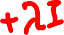 +λI